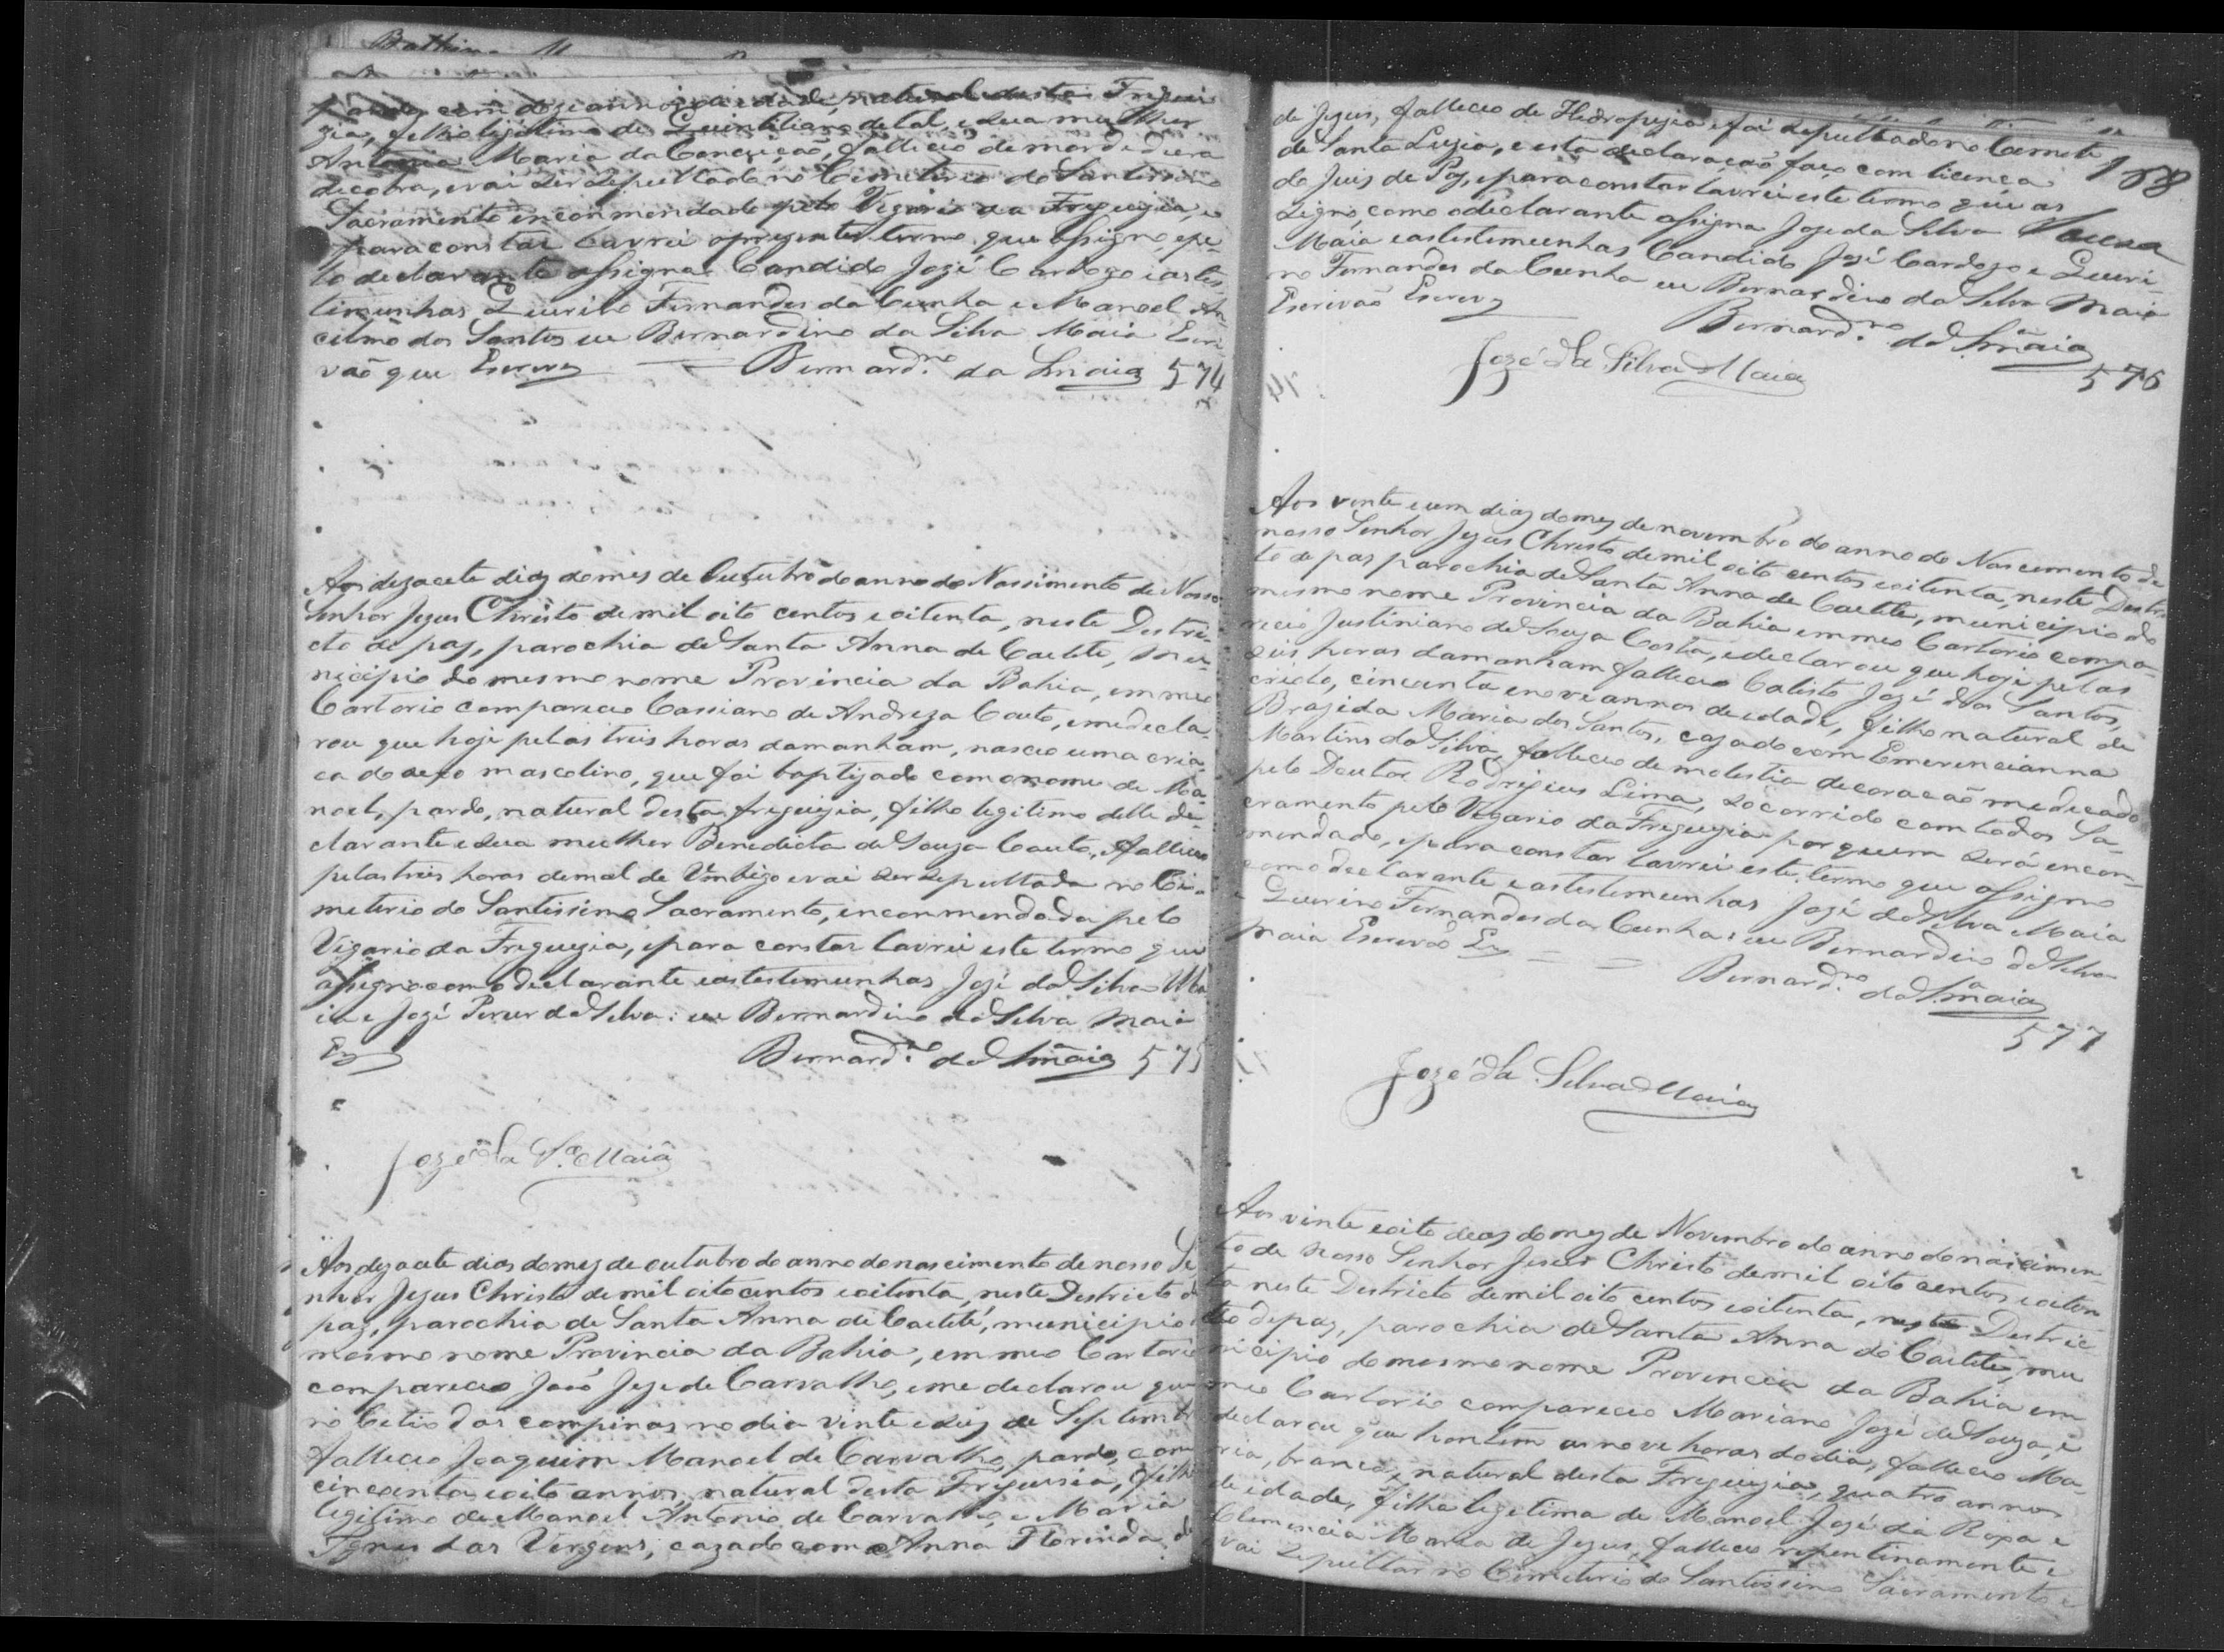 pardo, com doze annos de idade, natural desta Fregui
zia, filho ligitimo de Quintiliano de tal, e sua mulher
Antonia Maria da Conceição, falleceo de mordedura
de cobra, e vai ser sepultado no Cemeterio do Santissimo
Sacramento encommendado pelo Vigario da Freguizia, e
para constar lavrei o presente termo que assigno e pe-
lo declarante assigna Candido José Cardozo e as tes
timunhas Quirino Fernandes da Cunha e Manoel An-
celmo dos Santos eu Bernardino da Silva Maia Escri
vão que Escrevy Bernard.no da S.a Maia 574
Aos dezacete dias do mes de Outubro do anno do Nassimento de Nosso
Senhor Jezus Christo de mil oito centos e oitenta, neste Destri-
cto de paz, parochia de Santa Anna de Caetite, Mu-
nicipio do mesmo nome Provincia da Bahia, em meo
Cartorio compareceo Cassiano de Andreza Couto, e me decla-
rou que hoje pelas tres horas da manham, nasceo uma crian-
ca do sexo mascolino, que foi baptizado com o nome de Ma-
noel, pardo, natural desta freguizia, filho legitimo delle de-
clarante e sua mulher Benedicta de Souza Couto, falleceo
pelas tres horas de mal de Umbigo e vai ser sepultada no Ci-
meterio do Santissimo Sacramento, encommendada pelo
Vigario da Freguezia, e para constar lavrei este termo que
assigno com o declarante e as testemunhas José da Silva Ma
ia e José da Silva: eu Bernardino da Silva Maia
Ey Bernard.no da S.a Maia 575
Jozé da S.a Maia
Aos dezacete dias do mez de outubro do anno do nascimento de nosso Se
nhor Jezus Christo de mil oitocentos e oitenta, neste Destricto de
paz, parochia de Santa Anna de Caetité, municipio
mesmo nome Provincia da Bahia, em meo Cartorio
compareceo João Jozé de Carvalho, e me declarou que
no Cetio das campinas no dia vinte e seis de Septembr
falleceo Joaquim Manoel de Carvalho, pardo, com
cincoenta e oito annos natural desta Freguesia, filho
legitimo de Manoel Antonio de Carvalho, e Maria
Ignes das Virgens, cazado com Anna Florinda de
de Jezus, falleceo de Hidropizia e foi sepultado no Cemete
de Santa Luzia, e esta declaração faço com licença
do Juis de Paz, e para constar lavrei este termo que as
signo, como o declarante assigna Jose da Silva
Maia e as testemunhas Candido José Cardozo e Quiri-
no Fernandes da Cunha eu Bernardino da Silva Maia
Escrivão Escrevy
Bernard.no da S.a Maia
576
Jozé da Silva Maia
158
Aos vinte e um dias do mez de novembro do anno do Nascimento de
nosso Senhor Jezus Christo de mil oito centos e oitenta, neste Destri
to de pas parochia de Santa Anna de Caetite, municipio do
mesmo nome Provincia da Bahia em meo Cartorio compa-
receo Justiniano de Souza Costa, e declarou que hoje pelas
seis horas da manham falleceo Calisto José dos Santos,
crioilo, cincoenta e nove annos de idade, filho natural de
Brazida Maria dos Santos, cazado com Emerencianna
Martins da Silva, falleceo de molestia de coracão medicado
pelo Doutor Rodrigues Lima, socorrido com todos Sa-
cramento pelo Vigario da Freguezia por quem será encom-
mendado, e para constar lavrei este termo que assigno
com o declarante e as testemunhas José da Silva Maia
e Quirino Fernandes da Cunha: eu Bernardino da Silva
Maia Escrivão Ey
Bernard.no da S.a Maia
577
Jozé da Silva Maia
Aos vinte e oito dias do mez de Novembro do anno do nascimen
to de Nosso Senhor Jesus Christo de mil oito centos e oiten
ta neste Destricto de mil oito centos e oitenta, neste Destric
to de paz, parochia de Santa Anna de Caetité, mu
nicipio do mesmo nome Provincia da Bahia em
meo Cartorio compareceo Mariano José de Souza, e
declarou que hontem as nove horas do dia, falleceo Ma-
ria, branca, natural desta Freguizia, quatro annos
de idade, filha legetima de Manoel José da Roxa e
Clemencia Maria de Jezus, falleceo repentinamente e
vai sepultar no Cemeterio do Santissimo Sacramento e